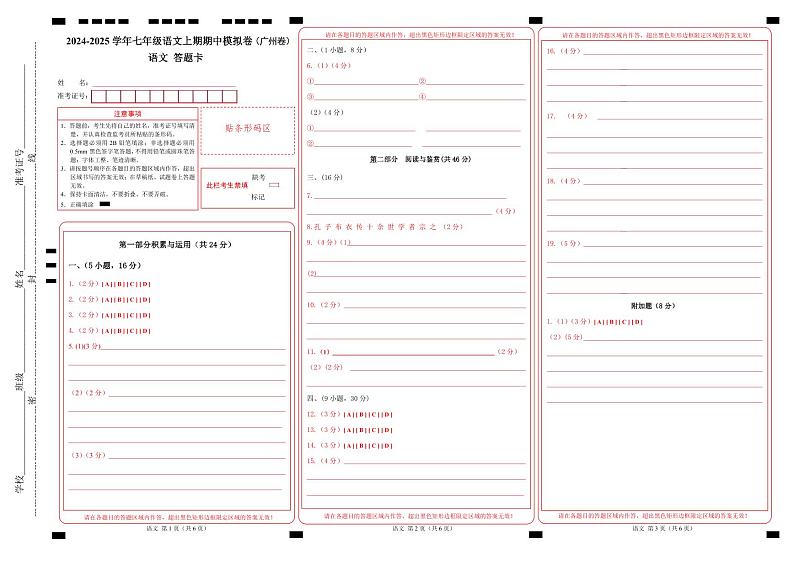 2024-2025 学年七年级语文上期期中模拟卷（广州卷）
语文 答题卡
姓 名：
准考证号：
注意事项
1．答题前，考生先将自己的姓名，准考证号填写清
楚，并认真检查监考员所粘贴的条形码。
2．选择题必须用 2B 铅笔填涂；非选择题必须用
0.5mm 黑色签字笔答题，不得用铅笔或圆珠笔答
题；字体工整、笔迹清晰。
3．请按题号顺序在各题目的答题区域内作答，超出
区域书写的答案无效；在草稿纸、试题卷上答题
无效。
4．保持卡面清洁，不要折叠、不要弄破。
5．正确填涂
贴条形码区
此栏考生禁填
缺考
标记
准考证号
姓名
班级
学校
线
封
密
第一部分积累与运用（共 24 分）
一、（5 小题，16 分）
1.（2 分）[A][B][C][D]
2.（2 分）[A][B][C][D]
3.（2 分）[A][B][C][D]
4.（2 分）[A][B][C][D]
5.(1)(3 分)
（2）（2 分）
（3）（3 分）
请在各题目的答题区域内作答，超出黑色矩形边框限定区域的答案无效！
语文 第 1 页（共 6 页）
请在各题目的答题区域内作答，超出黑色矩形边框限定区域的答案无效！
二、（1 小题，8 分）
6.（1）（4 分）
① ②
③ ④
（2）（4 分）
①
②
第二部分 阅读与鉴赏(共 46 分)
三、（16 分）
7.
（4 分）
8.孔 子 布 衣 传 十 余 世 学 者 宗 之 （2 分）
9.（4 分）(1)
(2)
10.（2 分）
11.（1） （2 分）
（2）（2 分）
四、（9 小题，30 分）
12.（3 分）[A][B][C][D]
13.（3 分）[A][B][C][D]
14.（3 分）[A][B][C][D]
15.（4 分）
请在各题目的答题区域内作答，超出黑色矩形边框限定区域的答案无效！
语文 第 2 页（共 6 页）
请在各题目的答题区域内作答，超出黑色矩形边框限定区域的答案无效！
16.（4 分）
17. （4 分）
18.（4 分）
19.（5 分）
附加题（8 分）
1.（1）（3 分）[A][B][C][D]
（2）（5 分）
请在各题目的答题区域内作答，超出黑色矩形边框限定区域的答案无效！
语文 第 3 页（共 6 页）